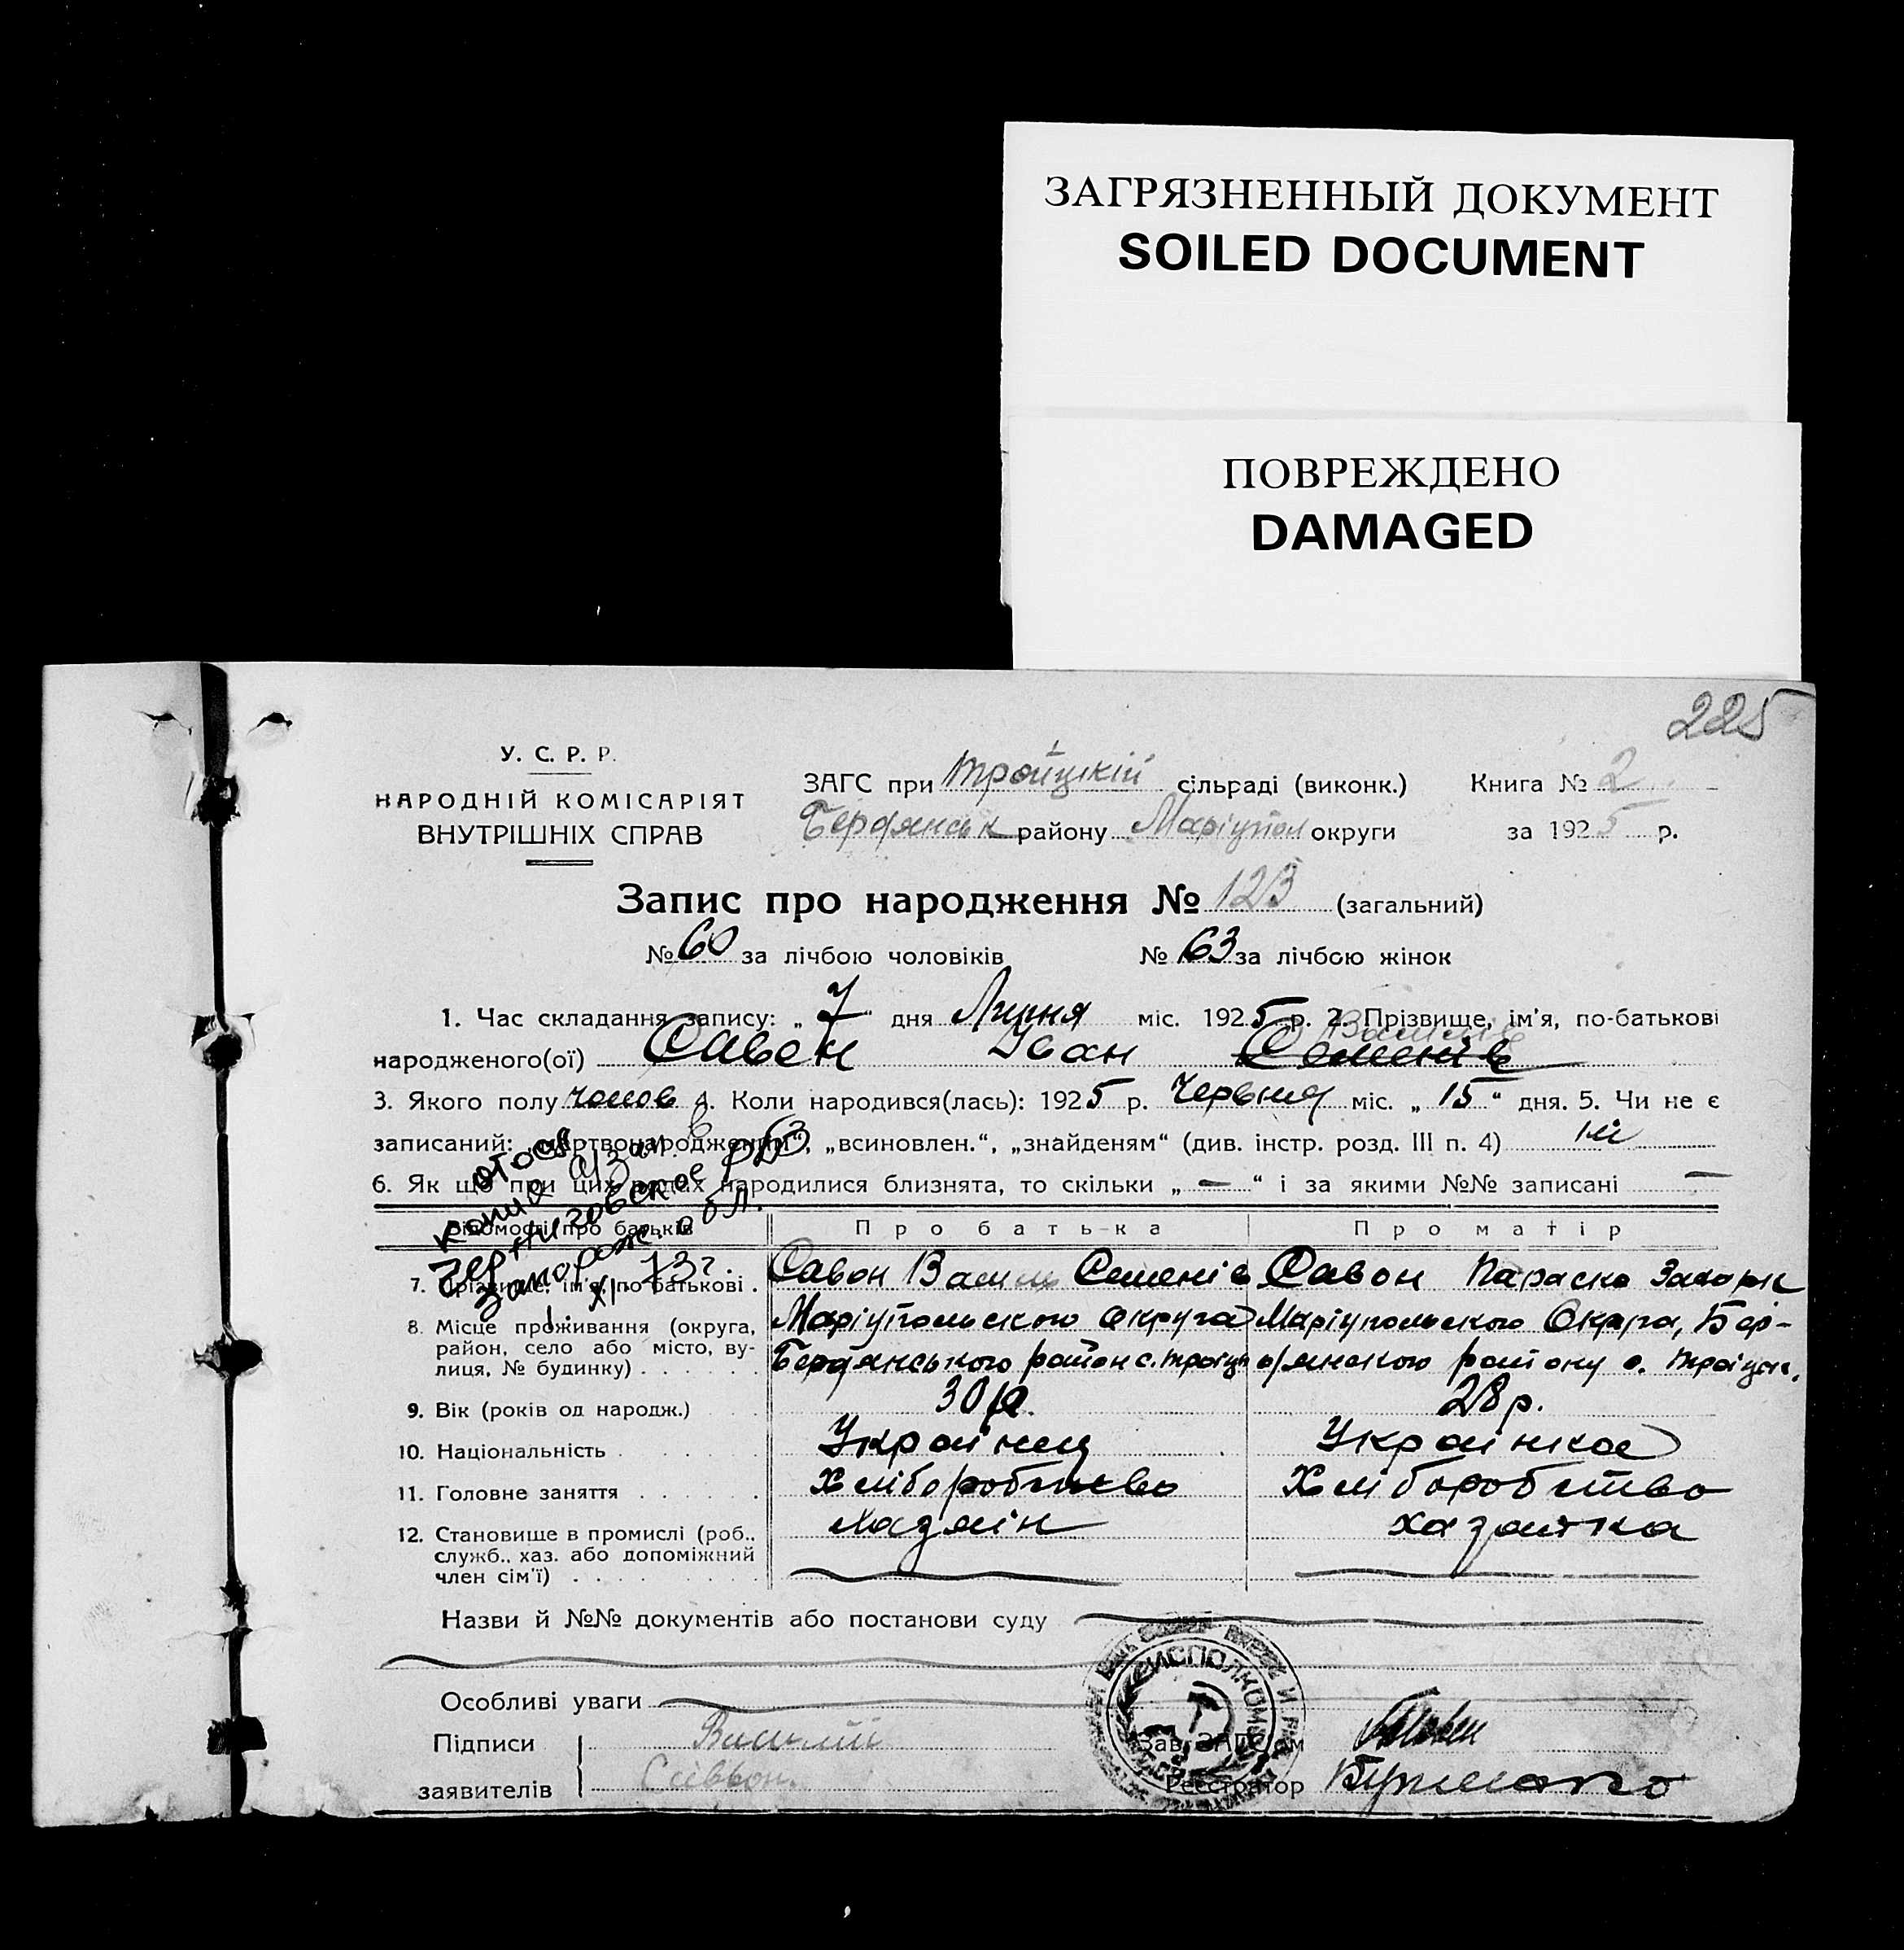 ЗАГРЯЗНЕННЫЙ ДОКУМЕНТ
SOILED DOCUMENT
ПОВРЕЖДЕНО
DAMAGED
225
У. С. Р. Р.
НАРОДНІЙ КОМІСАРІЯТ
ВНУТРІШНІХ СПРАВ
ЗАГС при Троїцкій сільраді (виконк.) Книга № 2
Бердянськ району Маріупол округи за 1925 р.
Запис про народження № 123 (загальний)
№ 60 за лічбою чоловіків № 63 за лічбою жінок
1. Час складання запису: „7“ дня Липня міс. 1925 р. 2. Прізвище, ім'я, по-батькові
народженого(ої) Савон Іван Семенів
3. Якого полу чолов 4. Коли народився(лась): 1925 р. Червня міс. „15“ дня. 5. Чи не є
записаний: „мертвонародженим“, „всиновлен.“, „знайденям“ (див. інстр. розд. III п. 4) ні
6. Як що при цих родах народилися близнята, то скільки „—“ і за якими №№ записані —
Відомості про батьків Про батька Про матір
7. Прізвище, ім'я, по батькові . Савон Василь Семенів Савон Параска Захарк
8. Місце проживання (округа, Маріупольского Округа Маріупольского Округа, Бер-
район, село або місто, ву- Бердянського район с. Троїцк дянского району с. Троїцк.
лиця, № будинку)
9. Вік (років од народж.) 30 р. 28 р.
10. Національність Українец Українка
11. Головне заняття Хліборобство Хліборобство
12. Становище в промислі (роб., Хазяїн хазяйка
служб., хаз. або допоміжний
член сім'ї)
Назви й №№ документів або постанови суду
Особливі уваги
Підписи Василий
заявителів Саввон.
Зав. ЗАГС'ом
Реєстратор
ИСПОЛКОМ
Черниговское РБ
Запорож. обл.
XI. 73г.